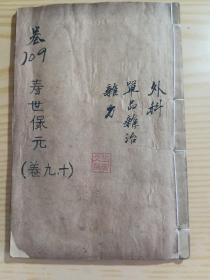 卷
109
寿世保元
(卷九.十)
外科
單方雜治
雜方